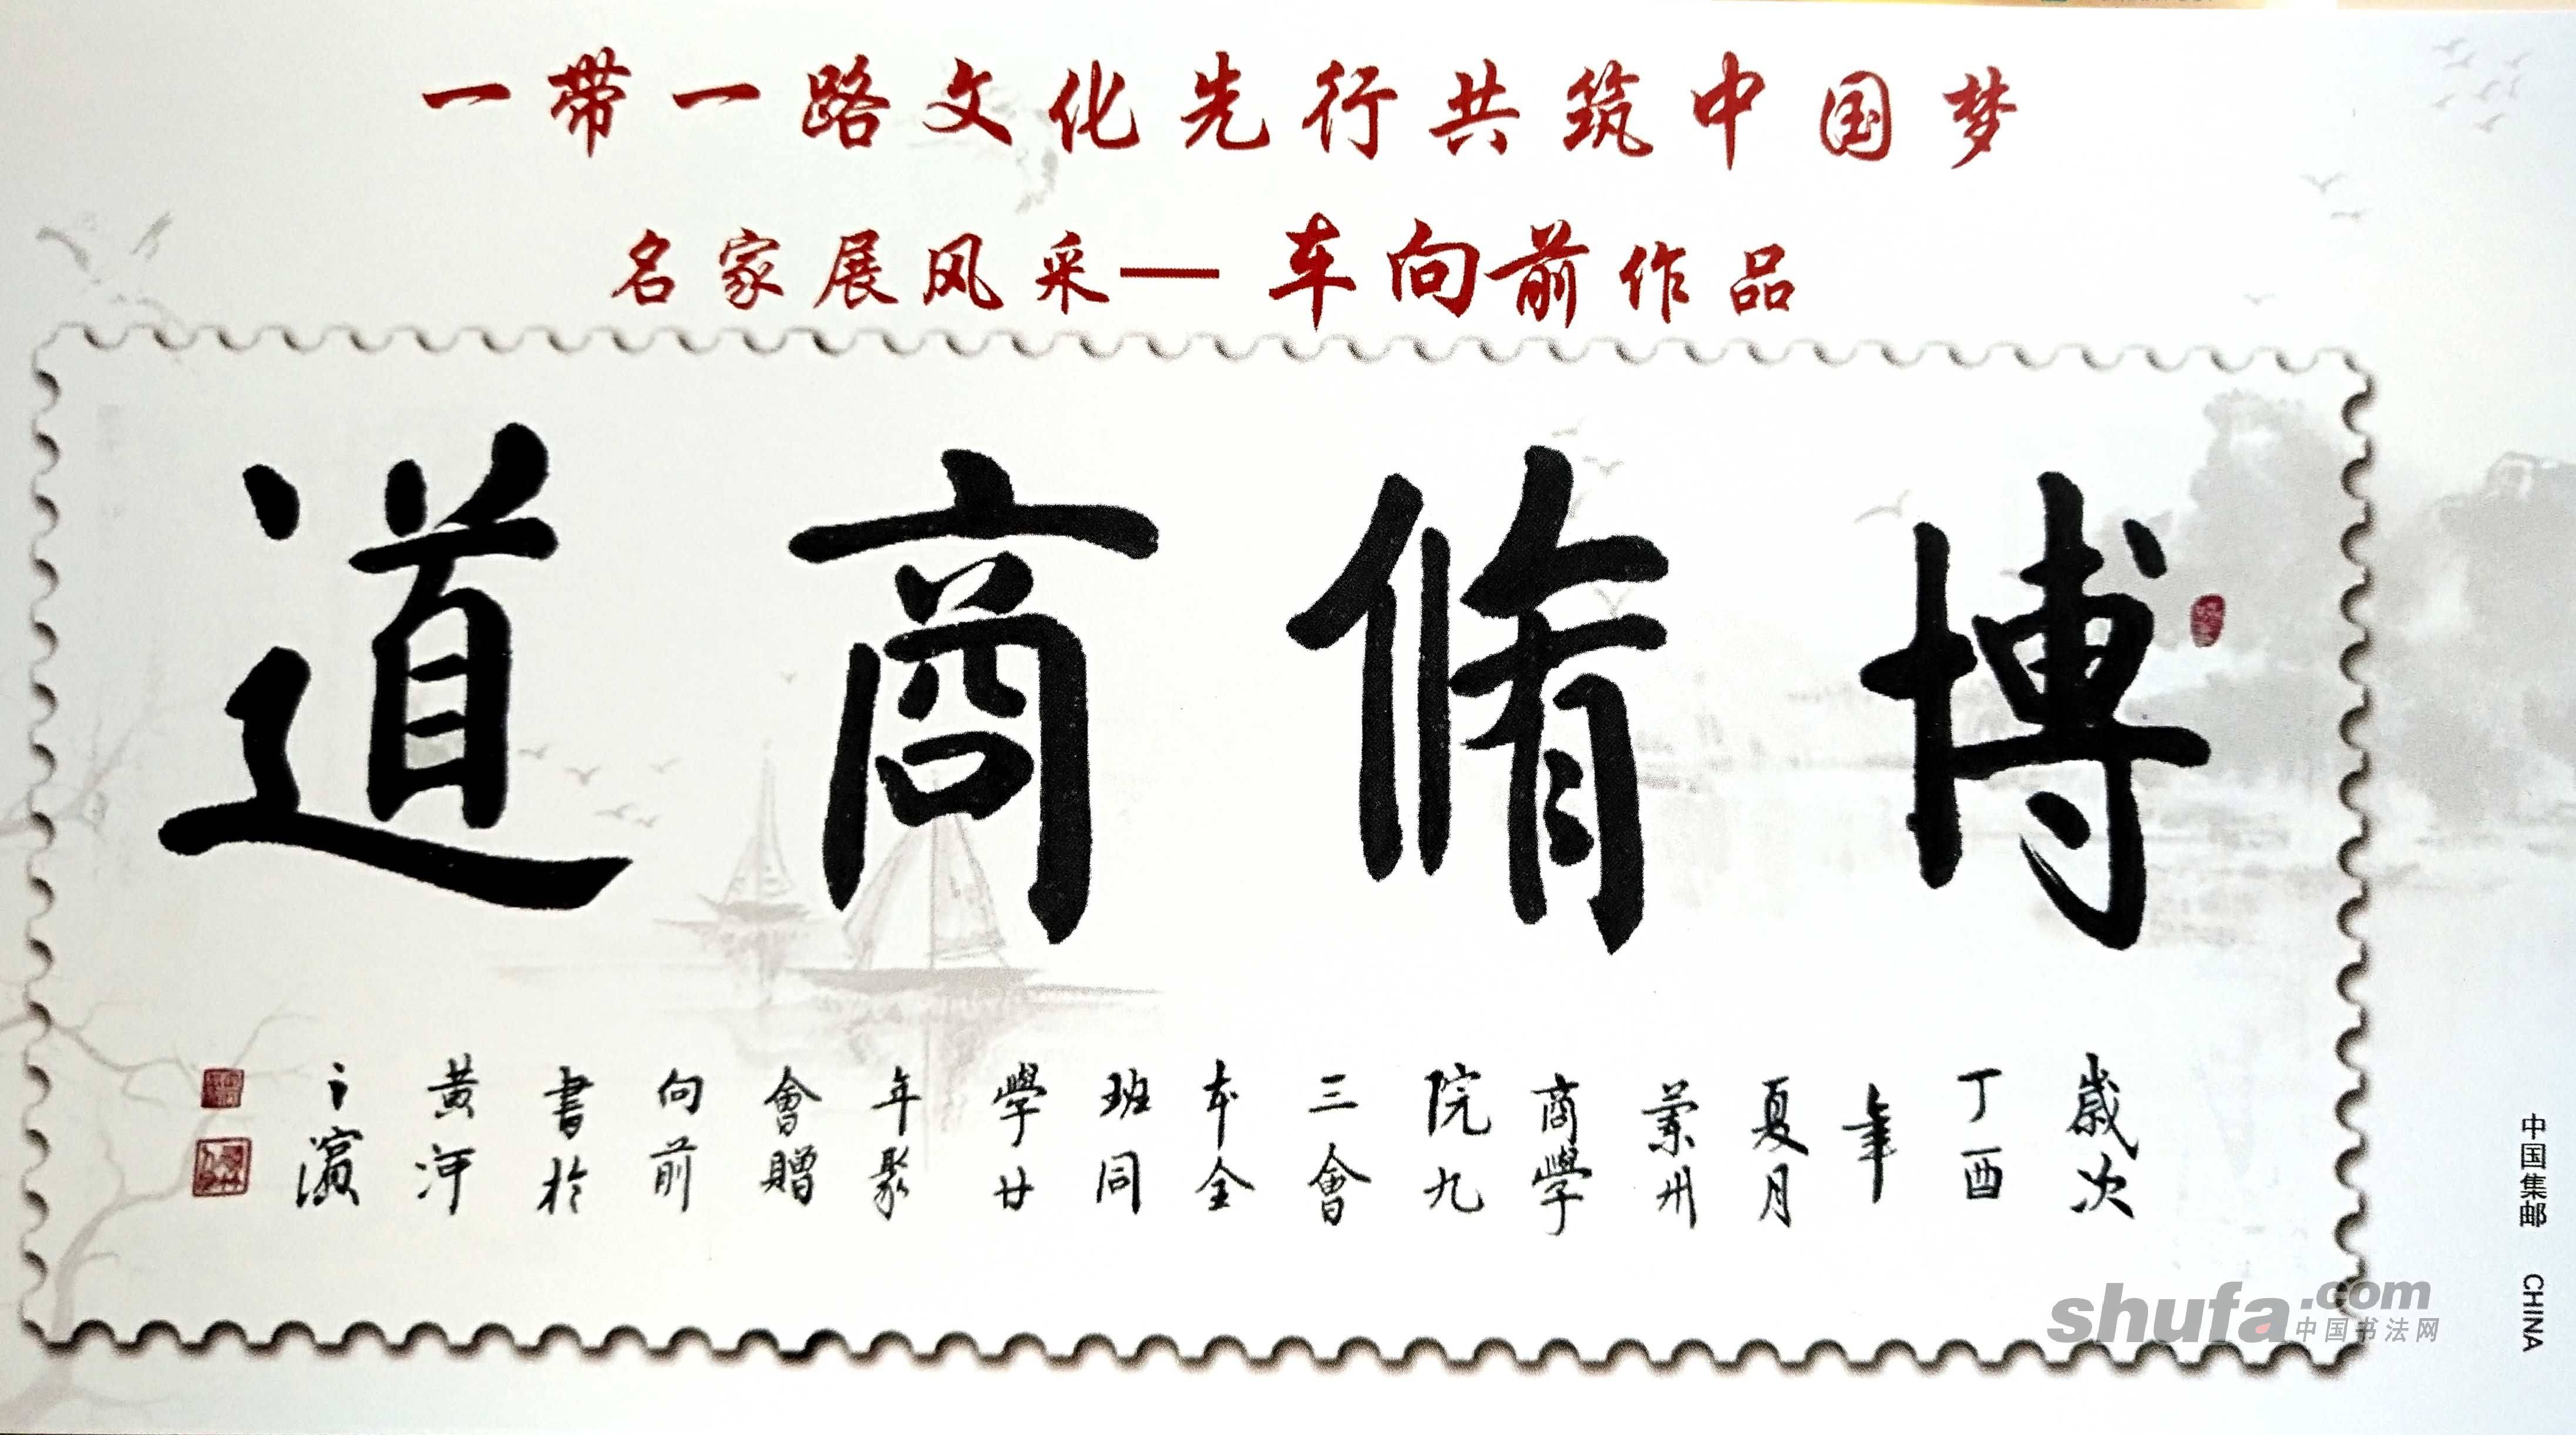 一带一路文化先行共筑中国梦
名家展风采— 车向前作品
博脩商道
歲次
丁酉
年
夏月
蘭州
商學
院九
三會
本全
班同
學廿
年聚
會贈
向前
書於
黄河
之濱
中国集邮 CHINA
shufa.com
中国书法网